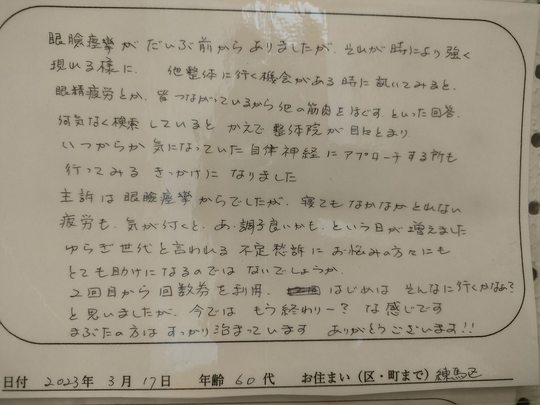 眼瞼痙攣がだいぶ前からありましたが、それが時により強く
現れる様に、 他整体に行く機会がある時に訊いてみると、
眼精疲労とか、皆つながっているから他の筋肉をほぐす、といった回答、
何気なく検索していると かえで整体院が目にとまり
いつからか気になっていた自律神経にアプローチする所も
行ってみるきっかけに なりました
主訴は眼瞼痙攣からでしたが、寝てもなかなかとれない
疲労も、気が付くと、あ、調子良いかも、という日が増えました
ゆらぎ世代と言われる 不定愁訴に お悩みの方々にも
とても助けになるのでは ないでしょうか、
2回目から回数券を利用、 はじめは そんなに行くかなぁ?
と思いましたが、今では もう終わりー? な感じです
まぶたの方は すっかり治まっています ありがとうございます!!
日付 2023年 3月 17日 年齢 60代 お住まい(区・町まで)練馬区